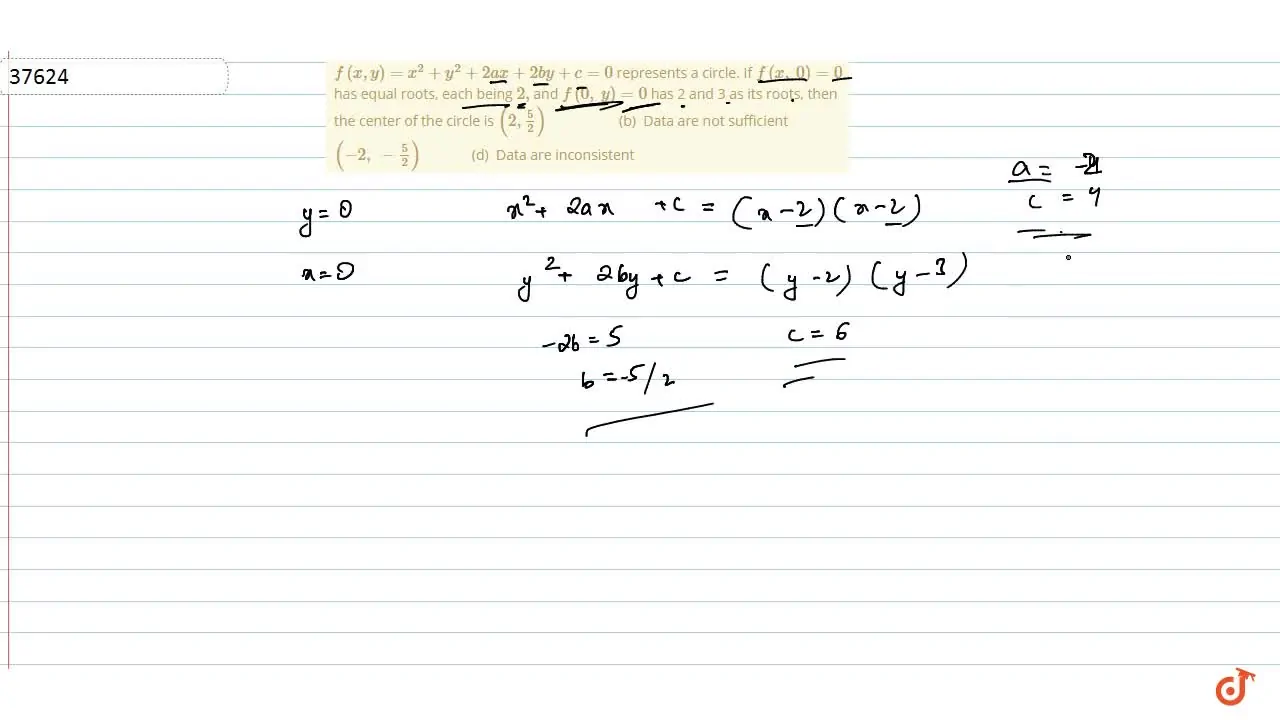 37624
f(x, y) = x² + y² + 2ax + 2by + c = 0 represents a circle. If f(x, 0) = 0
has equal roots, each being 2, and f(0, y) = 0 has 2 and 3 as its roots, then
the center of the circle is (2, 5/2) (b) Data are not sufficient
(-2, -5/2) (d) Data are inconsistent
a =
y = 0 x² + 2ax + c = (x - 2)(x - 2) c = 4
x = 0 y² + 2by + c = (y - 2)(y - 3)
-2b = 5 c = 6
b = -5/2